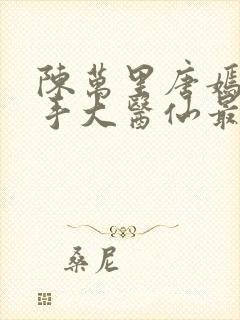 陳萬里唐嫣
手大醫仙最
桑尼